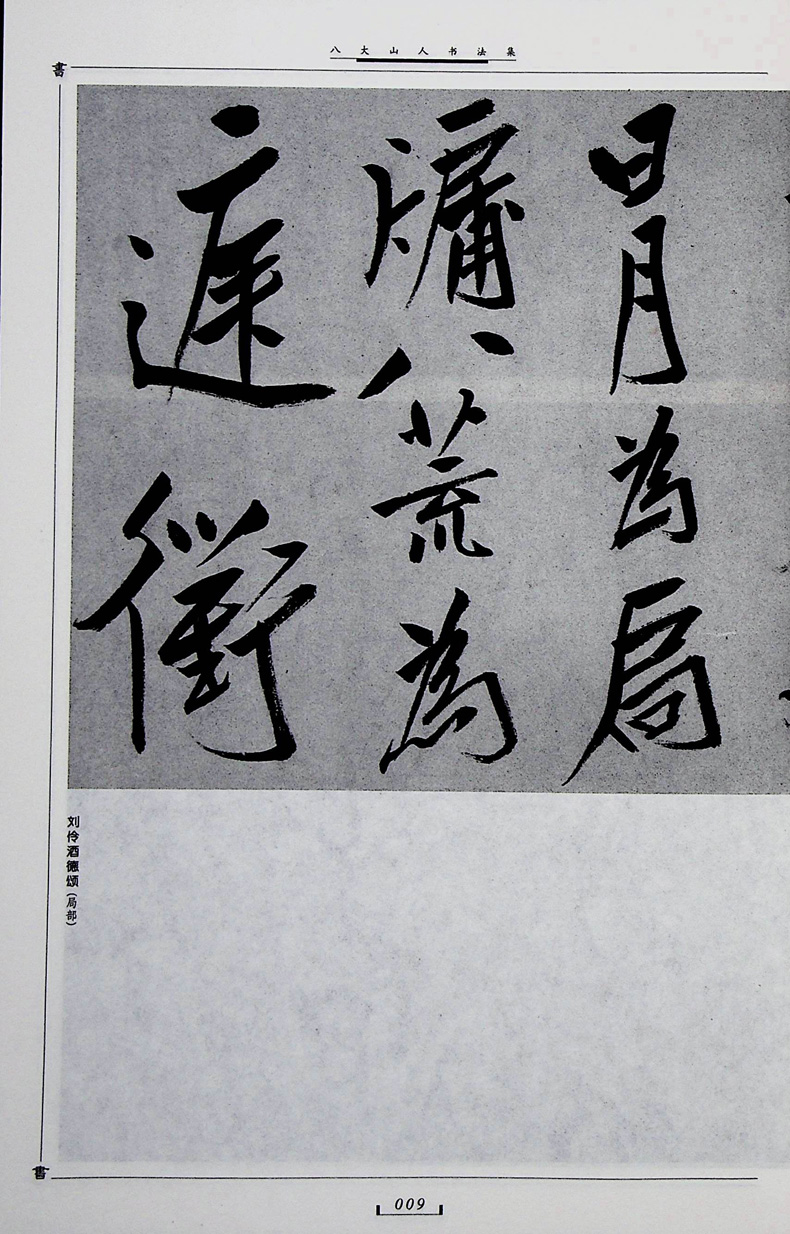 八大山人书法集
書
日月為扃
牖八荒為
庭衢
刘伶酒德颂（局部）
書
009